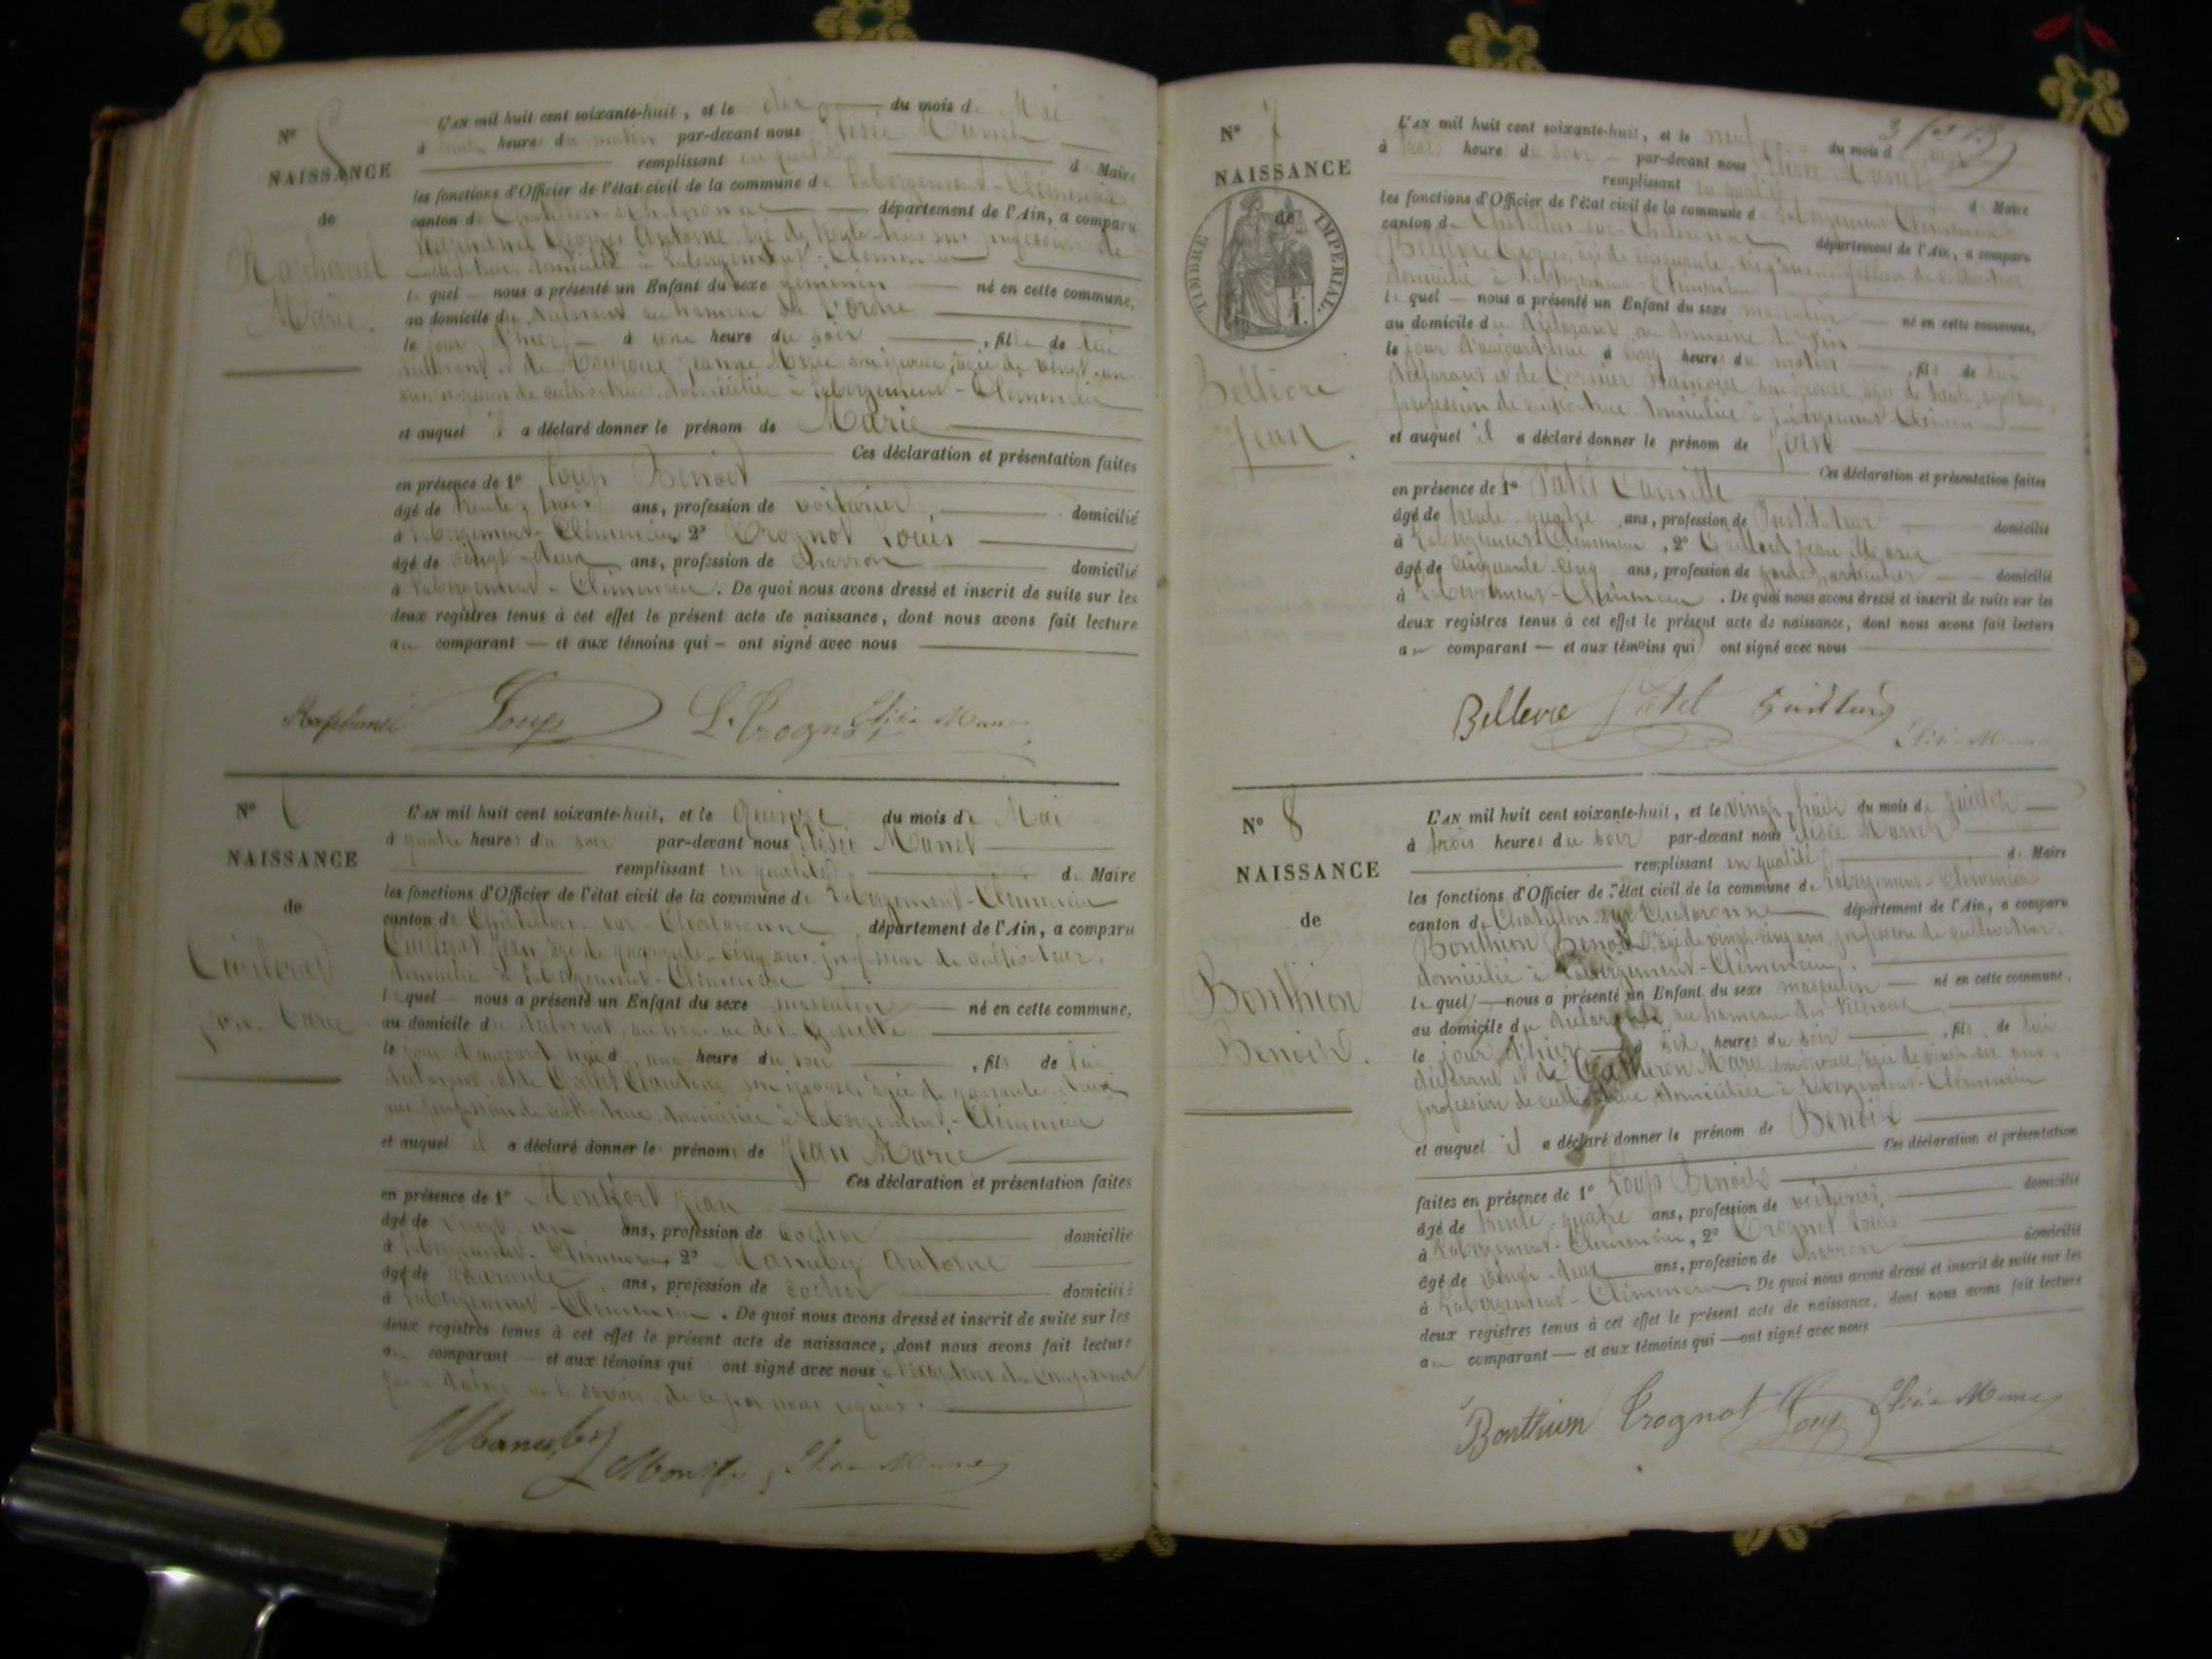 Nº 5
NAISSANCE
de
Raphanel
Marie.
L'AN mil huit cent soixante-huit, et le dix du mois de Mai
à heures du matin par-devant nous Elisée Manet
remplissant en qualité de Maire
les fonctions d'Officier de l'état civil de la commune de Labergement-Clémencia
canton de Chatillon-sur-Chalaronne département de l'Ain, a comparu
Raphanel Antoine, âgé de trente-trois ans, profession de
cultivateur, domicilié à Labergement-Clémencia
lequel nous a présenté un Enfant du sexe féminin né en cette commune,
au domicile du déclarant au hameau de l'Ordre
le jour d'hier à une heure du soir, fille de lui
déclarant et de Jeanne Marie son épouse, âgée de vingt-un
ans, profession de cultivatrice, domiciliée à Labergement-Clémencia
et auquel il a déclaré donner le prénom de Marie
Ces déclaration et présentation faites
en présence de 1º Loup Benoit
âgé de trente-trois ans, profession de voiturier, domicilié
à Labergement-Clémencia, 2º Crognot Louis
âgé de vingt-deux ans, profession de charron domicilié
à Labergement-Clémencia. De quoi nous avons dressé et inscrit de suite sur les
deux registres tenus à cet effet le présent acte de naissance, dont nous avons fait lecture
au comparant — et aux témoins qui — ont signé avec nous
Raphanel Loup L. Crognot Elisée Manet
Nº 6
NAISSANCE
de
Jean Marie
L'AN mil huit cent soixante-huit, et le quinze du mois de Mai
à quatre heures du soir par-devant nous Elisée Manet
remplissant en qualité de Maire
les fonctions d'Officier de l'état civil de la commune de Labergement-Clémencia
canton de Chatillon-sur-Chalaronne département de l'Ain, a comparu
Jean, âgé de quarante-cinq ans, profession de cultivateur,
domicilié à Labergement-Clémencia
lequel nous a présenté un Enfant du sexe masculin né en cette commune,
au domicile du déclarant, au hameau de la
le jour d'aujourd'hui à une heure du soir, fils de lui
déclarant et de Claudine son épouse, âgée de quarante-deux
ans, profession de cultivatrice, domiciliée à Labergement-Clémencia
et auquel il a déclaré donner les prénoms de Jean Marie
Ces déclaration et présentation faites
en présence de 1º Montfort Jean
âgé de vingt-un ans, profession de cocher domicilié
à Labergement-Clémencia, 2º Manuby Antoine
âgé de quarante ans, profession de cocher domicilié
à Labergement-Clémencia. De quoi nous avons dressé et inscrit de suite sur les
deux registres tenus à cet effet le présent acte de naissance, dont nous avons fait lecture
au comparant et aux témoins qui ont signé avec nous à l'exception du comparant
qui a déclaré ne le savoir, de ce par nous requis.
Manuby Montfort Elisée Manet
Nº 7
NAISSANCE
de
TIMBRE IMPERIAL.
Bellevre
Jean.
L'AN mil huit cent soixante-huit, et le neuf du mois de
à trois heures du soir par-devant nous Elisée Manet
remplissant en qualité de Maire
les fonctions d'Officier de l'état civil de la commune de Labergement-Clémencia
canton de Chatillon-sur-Chalaronne département de l'Ain, a comparu
Bellevre âgé de cinquante-cinq ans, profession de cultivateur
domicilié à Labergement-Clémencia
lequel — nous a présenté un Enfant du sexe masculin né en cette commune,
au domicile du déclarant, au domaine du
le jour d'aujourd'hui à cinq heures du matin, fils de lui
déclarant et de Cornier Françoise son épouse, âgée de trente-sept ans,
profession de cultivatrice domiciliée à Labergement-Clémencia
et auquel il a déclaré donner le prénom de Jean
Ces déclaration et présentation faites
en présence de 1º Patel Camille
âgé de trente-quatre ans, profession de Instituteur domicilié
à Labergement-Clémencia, 2º Jean Marie
âgé de cinquante-cinq ans, profession de garde particulier domicilié
à Labergement-Clémencia. De quoi nous avons dressé et inscrit de suite sur les
deux registres tenus à cet effet le présent acte de naissance, dont nous avons fait lecture
au comparant — et aux témoins qui ont signé avec nous
Bellevre Patel Elisée Manet
Nº 8
NAISSANCE
de
Bonthion
Benoit.
L'AN mil huit cent soixante-huit, et le vingt-huit du mois de Juillet
à trois heures du soir par-devant nous Elisée Manet
remplissant en qualité de Maire
les fonctions d'Officier de l'état civil de la commune de Labergement-Clémencia
canton de Chatillon-sur-Chalaronne département de l'Ain, a comparu
Bonthion Benoit, âgé de vingt-cinq ans, profession de cultivateur,
domicilié à Labergement-Clémencia,
lequel — nous a présenté un Enfant du sexe masculin né en cette commune,
au domicile du déclarant, au hameau des
le jour d'hier à six heures du soir, fils de lui
déclarant et de Marie, son épouse, âgée de vingt-six ans,
profession de cultivatrice domiciliée à Labergement-Clémencia
et auquel il a déclaré donner le prénom de Benoit
Ces déclaration et présentation
faites en présence de 1º Loup Benoit
âgé de trente-quatre ans, profession de voiturier, domicilié
à Labergement-Clémencia, 2º Crognot Louis
âgé de vingt-deux ans, profession de charron domicilié
à Labergement-Clémencia. De quoi nous avons dressé et inscrit de suite sur les
deux registres tenus à cet effet le présent acte de naissance, dont nous avons fait lecture
au comparant — et aux témoins qui — ont signé avec nous
Bonthion Crognot Loup Elisée Manet